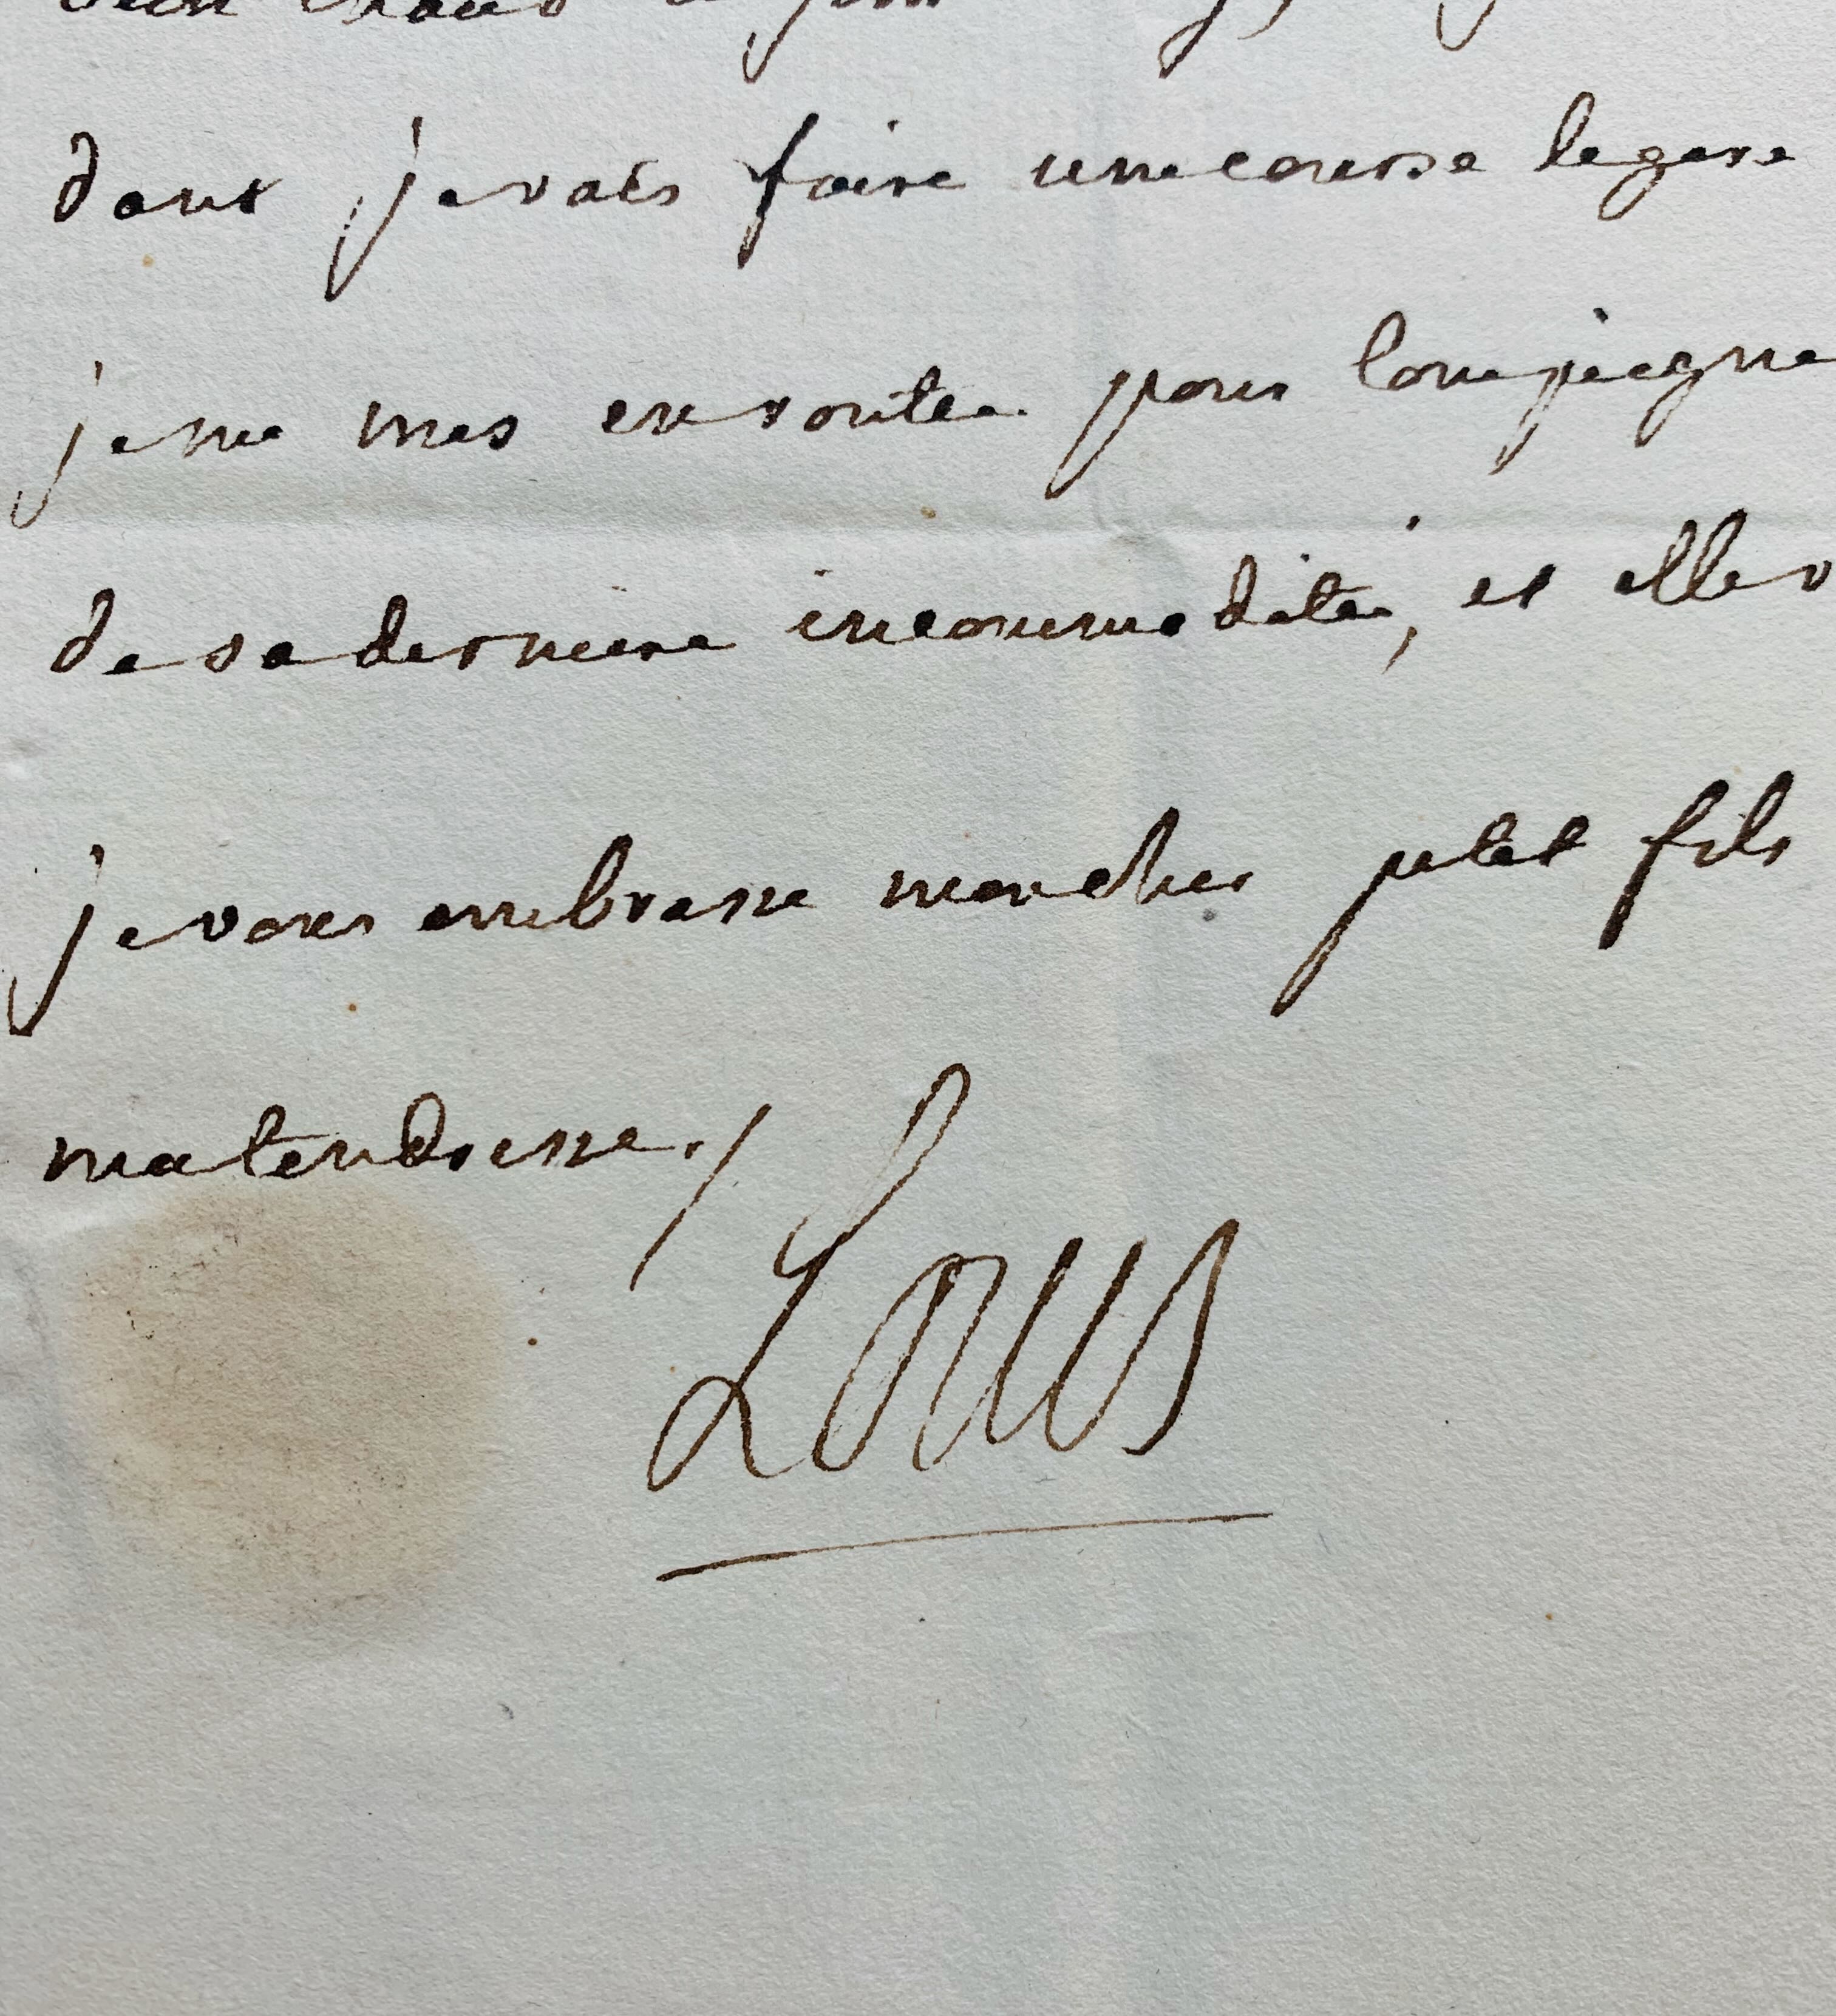 dont je vais faire une course legere
je me mes en route pour Compiegne
de sa derniere incommodité, et elle v
je vous embrasse mon cher petit fils
ma tendresse./.
Louis